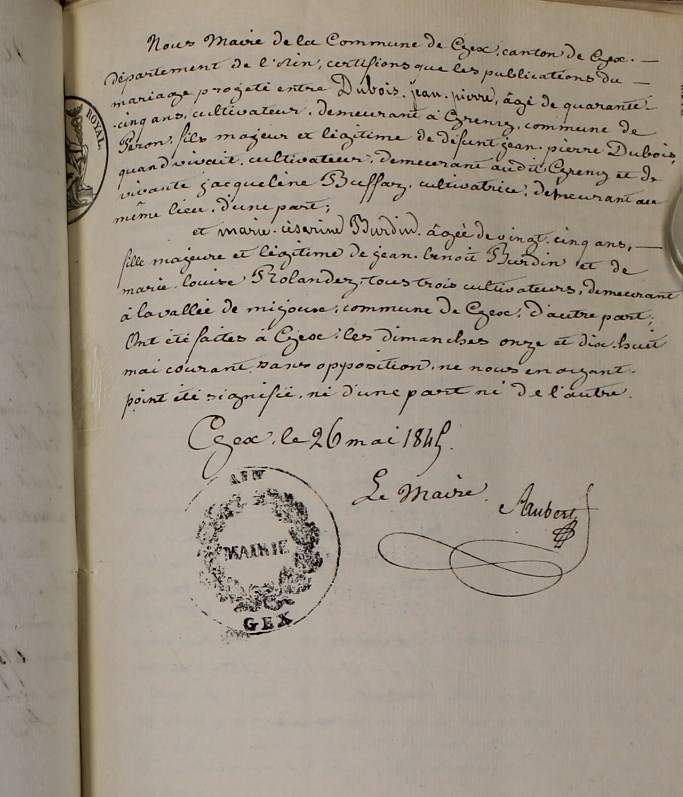 ROYAL
Nous Maire de la Commune de Gex, canton de Gex. —
département de l'Ain, certifions que les publications du —
mariage projeté entre Dubois. jean. pierre, âgé de quarante-
cinq ans, cultivateur, demeurant à Greny, commune de
Peron, fils majeur et légitime de défunt jean. pierre Dubois,
quand vivait, cultivateur, demeurant au dit Greny et de
vivante jacqueline Buffaz, cultivatrice, demeurant au
même lieu, d'une part;
et marie. césarine Burdin, âgée de vingt. cinq ans, —
fille majeure et légitime de jean. benoit Burdin et de
marie. louise Rolandez, tous trois cultivateurs, demeurant
à la vallée de mijoux, commune de Gex, d'autre part;
Ont été faites à Gex, les dimanches onze et dix. huit
mai courant, sans opposition, ne nous en ayant
point été signifié, ni d'une part ni de l'autre.
Gex, le 26 mai 1845.
Le Maire
Aubert
AIN
MAIRIE
GEX